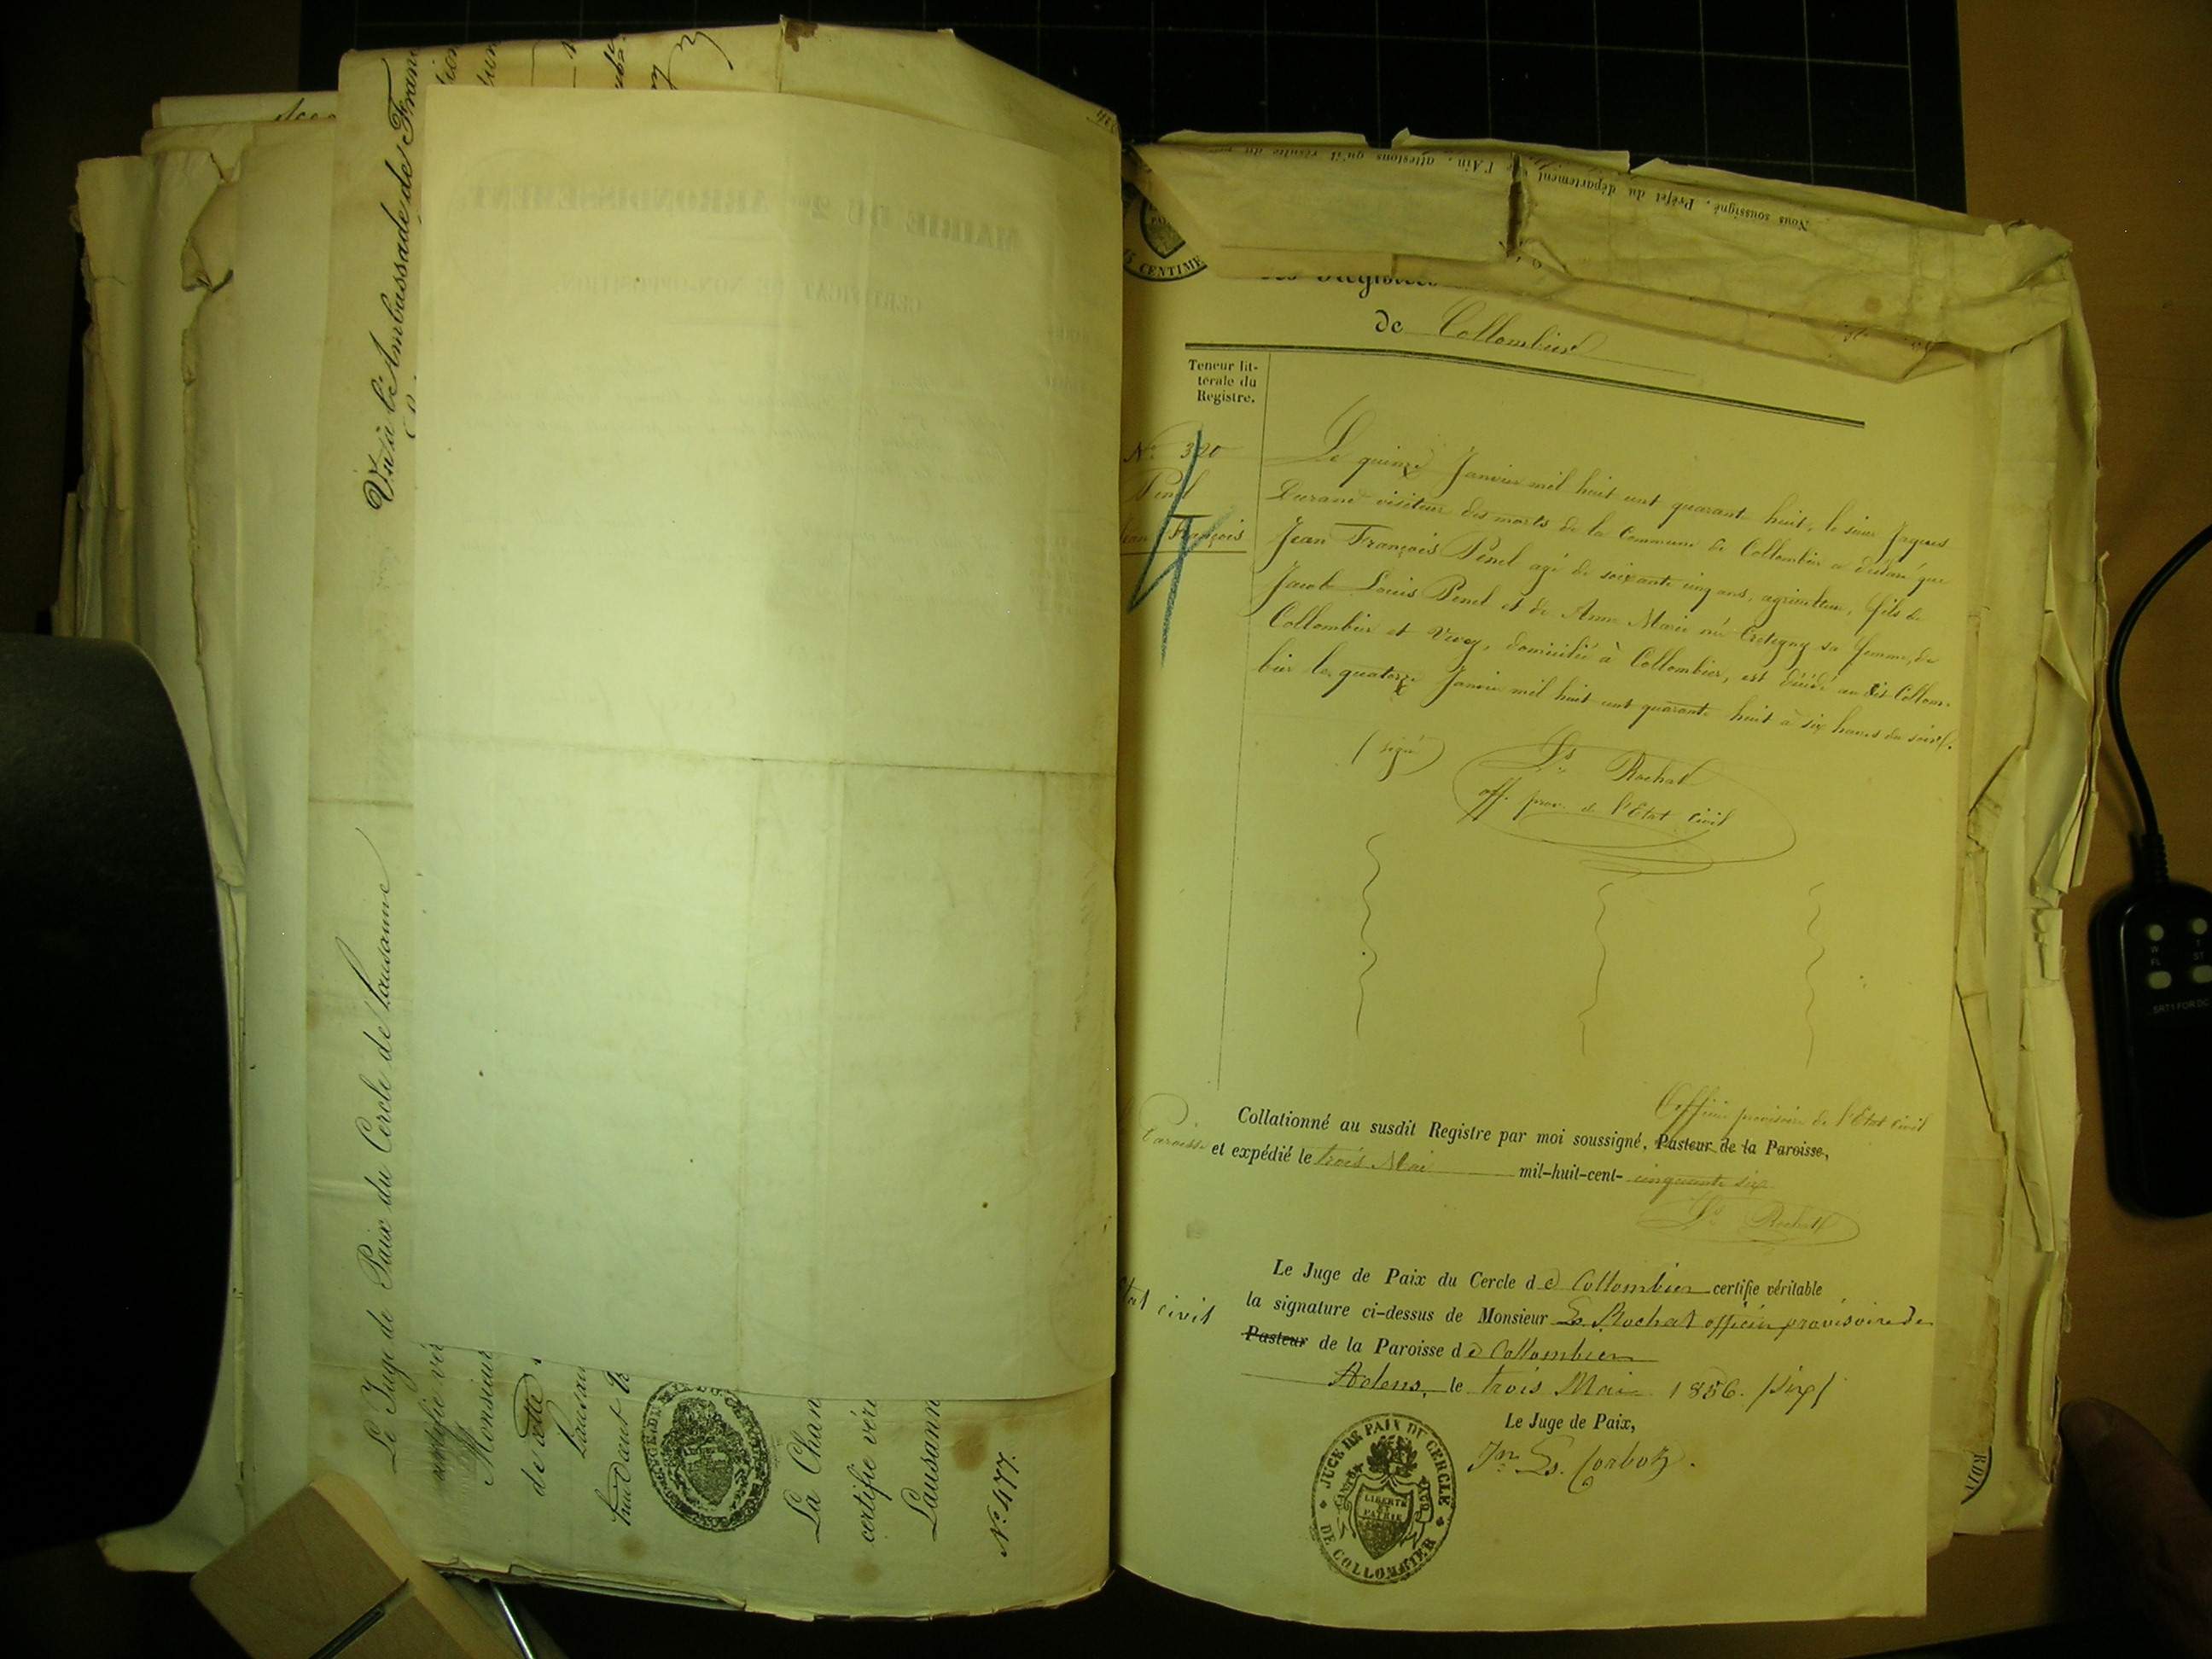 Vu à l'Ambassade de Fran
Le Juge de Paix du Cercle de Lausanne
certifie vér
Monsieur
de cette
Lausan
huit cent
La Chan
certifie véri
Lausann
N° 477.
Nous soussigné, Préfet du département de l'Ain, attestons qu'il résulte du
MAIRIE DU 2me ARRONDISSEMENT
CERTIFICAT DE NON-OPPOSITION.
CENTIME
des Régistres
de Collombier
Teneur lit-
térale du
Registre.
N° 320
Penel
Jean François
Le quinze Janvier mil huit cent quarante huit, le sieur Jaques
Durand visiteur des morts de la Commune de Collombier a déclaré que
Jean François Penel agé de soixante cinq ans, agriculteur, fils de
Jacob Louis Penel et de Anne Marie née Cretigny sa femme, de
Collombier et Vevey, domicilié à Collombier, est décédé au dit Collom-
bier le quatorze Janvier mil huit cent quarante huit à six heures du soir.
(signé) Ls Rochat
off. prov. de l'Etat civil
Officier provisoire de l'Etat civil
Collationné au susdit Registre par moi soussigné, Pasteur de la Paroisse,
Paroisse et expédié le trois Mai mil-huit-cent- cinquante six
Ls Rochat
Le Juge de Paix du Cercle de Collombier certifie véritable
la signature ci-dessus de Monsieur Ls Rochat officier provisoire de
état civil
Pasteur de la Paroisse de Collombier
Aclens, le trois Mai 1856. /six/
Le Juge de Paix,
Jn Ls. Corboz.
JUGE DE PAIX DU CERCLE
CANTON DE VAUD
LIBERTÉ
ET
PATRIE
DE COLLOMBIER